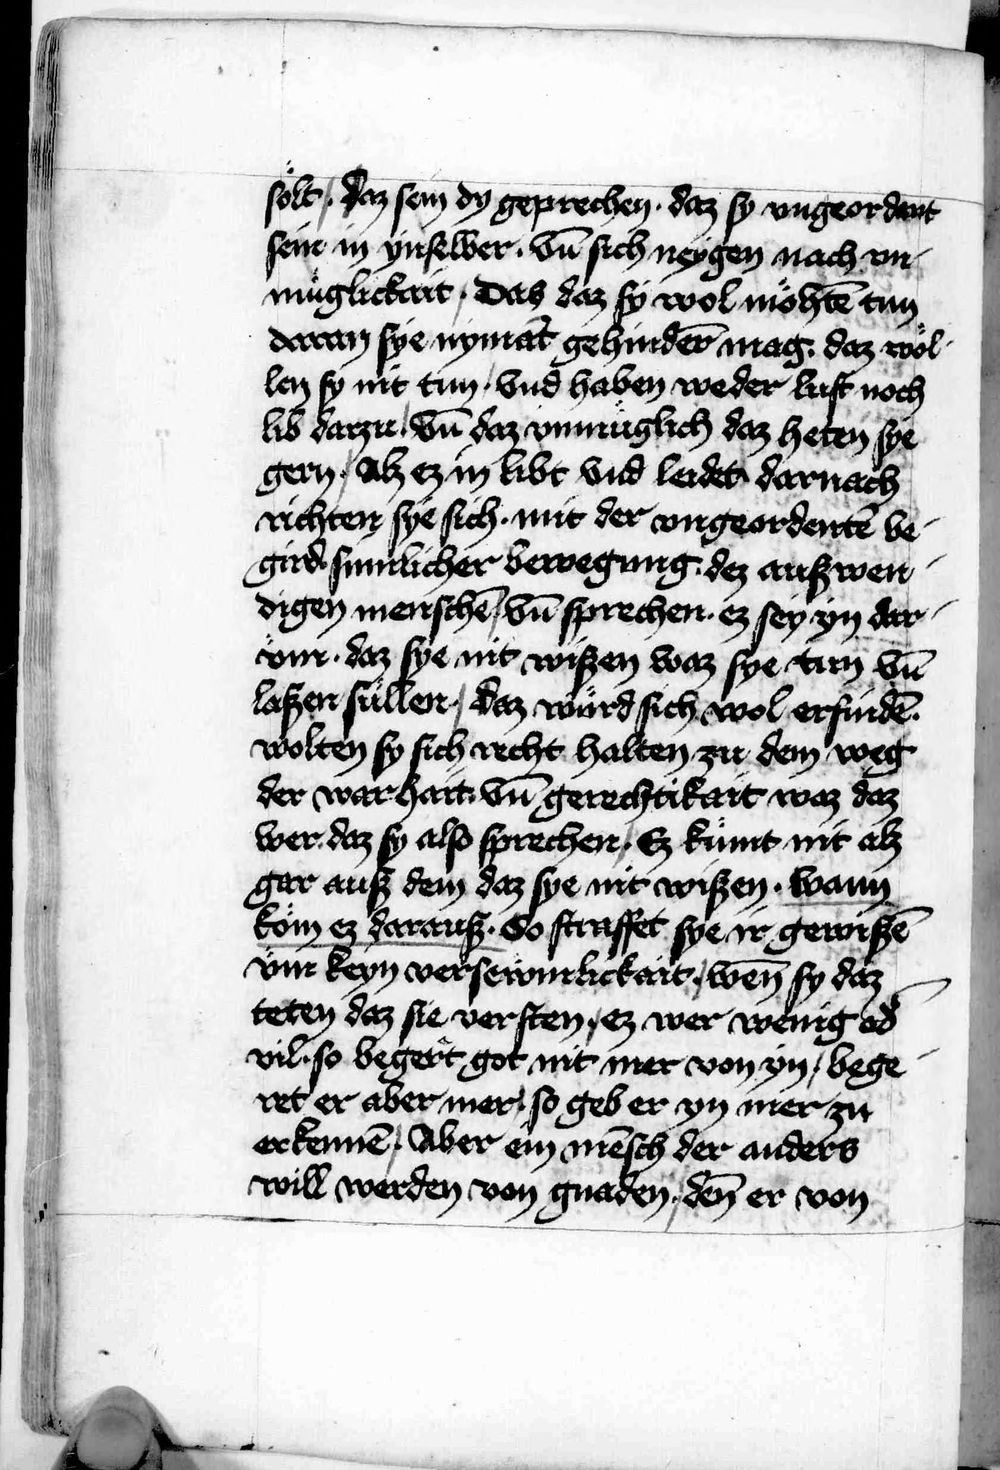 sölt / daz sein dy geprechen · daz sy vngeordent
sein in ynselber · vn̄ sich neygen nach vn-
müglickait / Das daz sy wol möhtē tun
daran sye nymāt gehindeř mag · daz wöl-
len sy nit tun / vnd haben weder lust noch
lib darzu / vn̄ daz vnmüglich daz heten sye
gern / Alz ez in libt vnd leidet darnach
richten sye sich · mit der vngeordentē be-
gird sinnlicher bewegung · dez außwen-
digen menschē / vn̄ sprechen · ez sey yn dar-
vm · daz sye nit wißen waz sye tun vn̄
laßen süllen / daz würd sich wol erfindē ·
wolten sy sich recht halten zu dem weg
der warhait · vn̄ gerechtikait waz daz
wer daz sy also sprechen / Ez kümt nit alz
gar auß dem daz sye nit wißen · wann
köm ez darauß · So straffet sye ir gewißē
vm keyn versewmlickait / wēn sy daz
teten daz sie versten / ez wer wenig od̄
vil · so begert got nit mer von yn / bege-
ret er aber mer / so geb er yn mer zu
erkennē / Aber ein mēsch der anders
will werden von gnaden / dēn er von